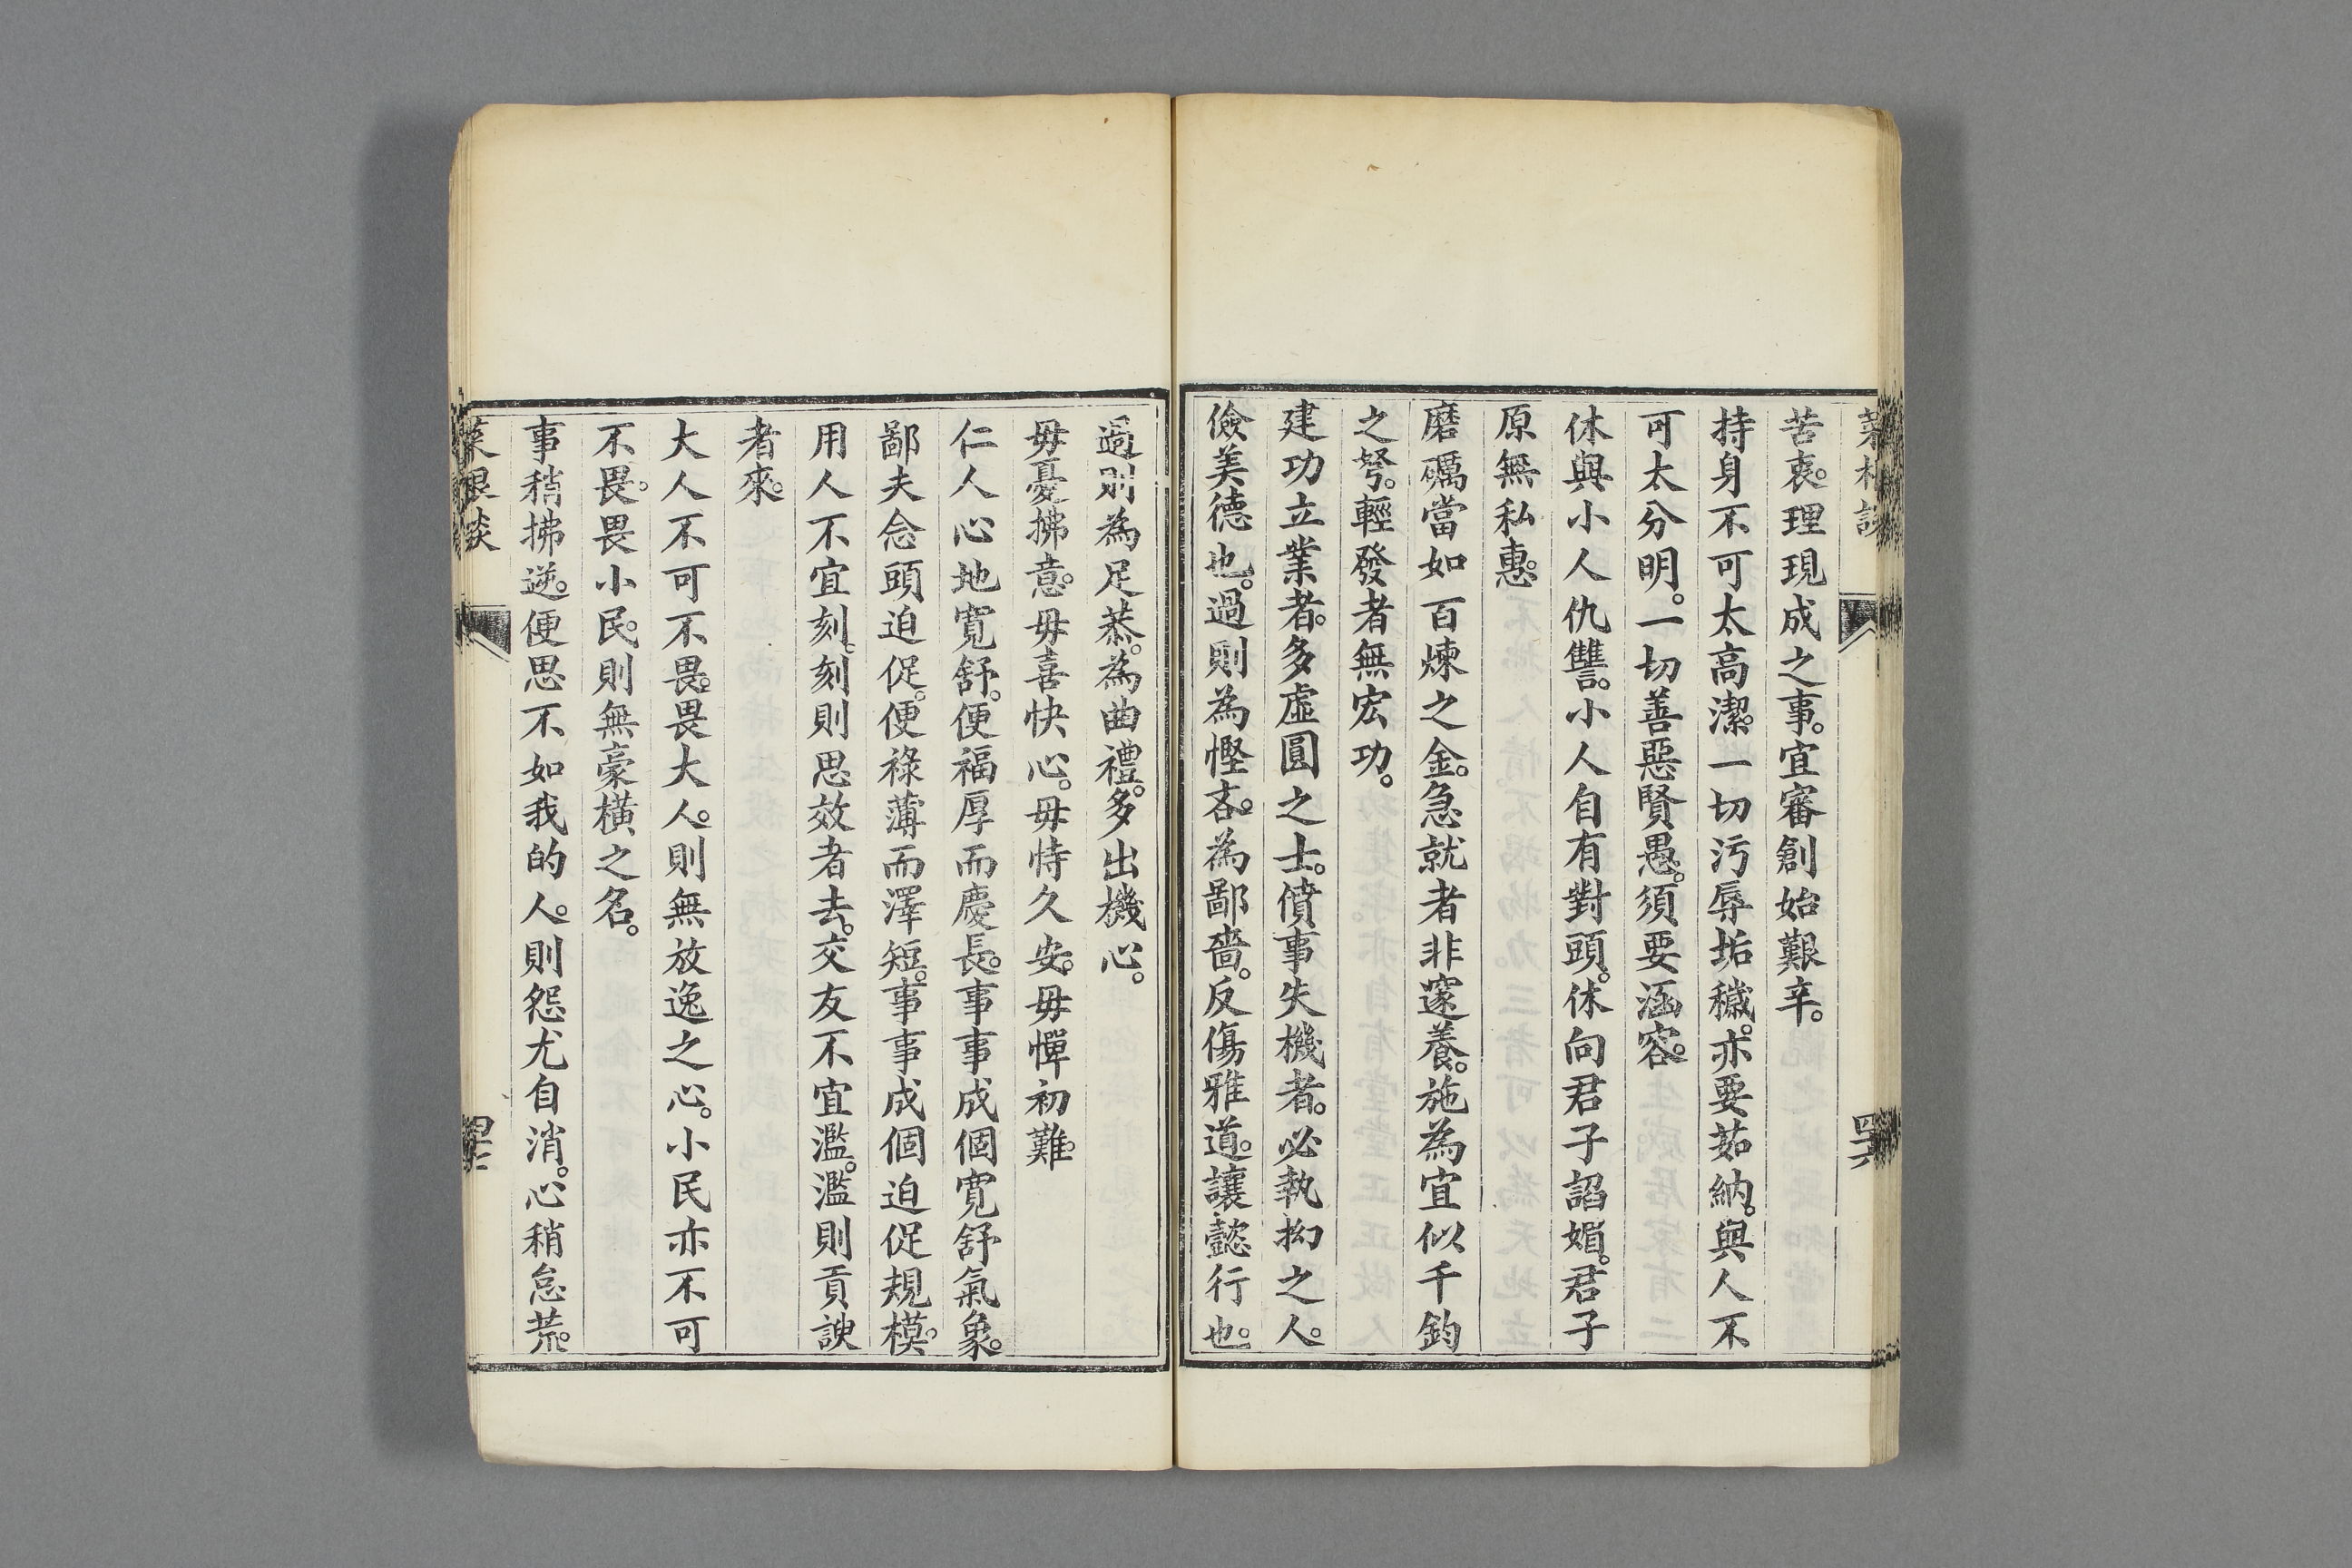 苦衷。理現成之事。宜審創始艱辛。
持身不可太高潔。一切污辱垢穢。亦要茹納。與人不
可太分明。一切善惡賢愚。須要涵容。
休與小人仇讐。小人自有對頭。休向君子謟媚。君子
原無私惠。
磨礪當如百煉之金。急就者非邃養。施為宜似千鈞
之弩。輕發者無宏功。
建功立業者。多虛圓之士。僨事失機者。必執拗之人。
儉美德也。過則為慳吝。為鄙嗇。反傷雅道。讓懿行也。
過則為足恭。為曲禮。多出機心。
毋憂拂意。毋喜快心。毋恃久安。毋憚初難。
仁人心地寬舒。便福厚而慶長。事事成個寬舒氣象。
鄙夫念頭迫促。便祿薄而澤短。事事成個迫促規模。
用人不宜刻。刻則思效者去。交友不宜濫。濫則貢諛
者來。
大人不可不畏。畏大人。則無放逸之心。小民亦不可
不畏。畏小民。則無豪橫之名。
事稍拂逆。便思不如我的人。則怨尤自消。心稍怠荒。
菜根談